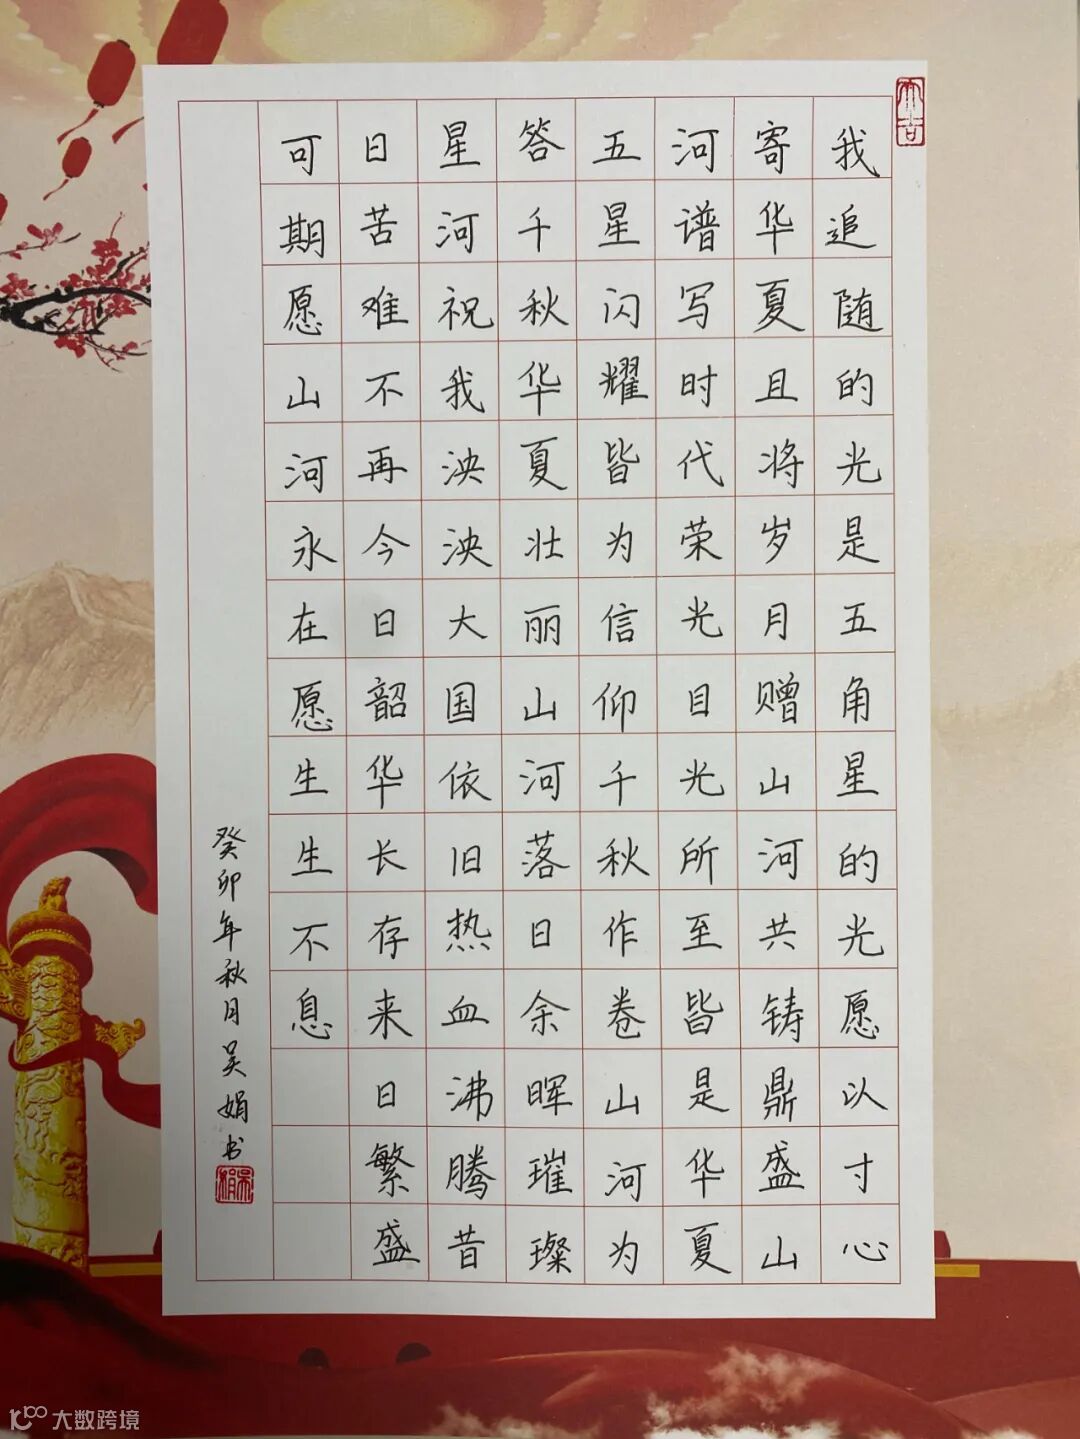 我追随的光是五角星的光愿以寸心
寄华夏且将岁月赠山河共铸鼎盛山
河谱写时代荣光目光所至皆是华夏
五星闪耀皆为信仰千秋作卷山河为
答千秋华夏壮丽山河落日余晖璀璨
星河祝我泱泱大国依旧热血沸腾昔
日苦难不再今日韶华长存来日繁盛
可期愿山河永在愿生生不息
癸卯年秋月吴娟书
吴娟
大吉
大数跨境